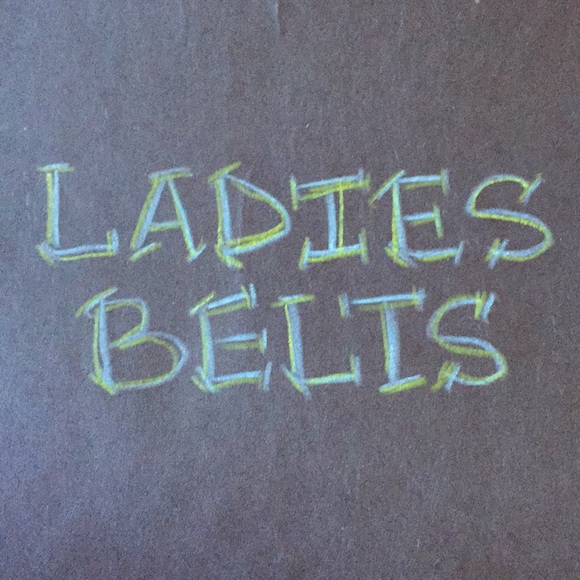 LADIES
BELTS